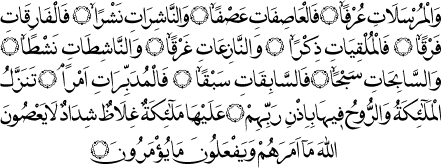 وَالْمُرْسَلَاتِ عُرْفًا ۝ فَالْعَاصِفَاتِ عَصْفًا ۝ وَالنَّاشِرَاتِ نَشْرًا ۝ فَالْفَارِقَاتِ
فَرْقًا ۝ فَالْمُلْقِيَاتِ ذِكْرًا ۝ وَالنَّازِعَاتِ غَرْقًا ۝ وَالنَّاشِطَاتِ نَشْطًا ۝
وَالسَّابِحَاتِ سَبْحًا ۝ فَالسَّابِقَاتِ سَبْقًا ۝ فَالْمُدَبِّرَاتِ أَمْرًا ۝ تَنَزَّلُ
الْمَلَائِكَةُ وَالرُّوحُ فِيهَا بِإِذْنِ رَبِّهِمْ ۝ عَلَيْهَا مَلَائِكَةٌ غِلَاظٌ شِدَادٌ لَا يَعْصُونَ
اللهَ مَا أَمَرَهُمْ وَيَفْعَلُونَ مَا يُؤْمَرُونَ ۝